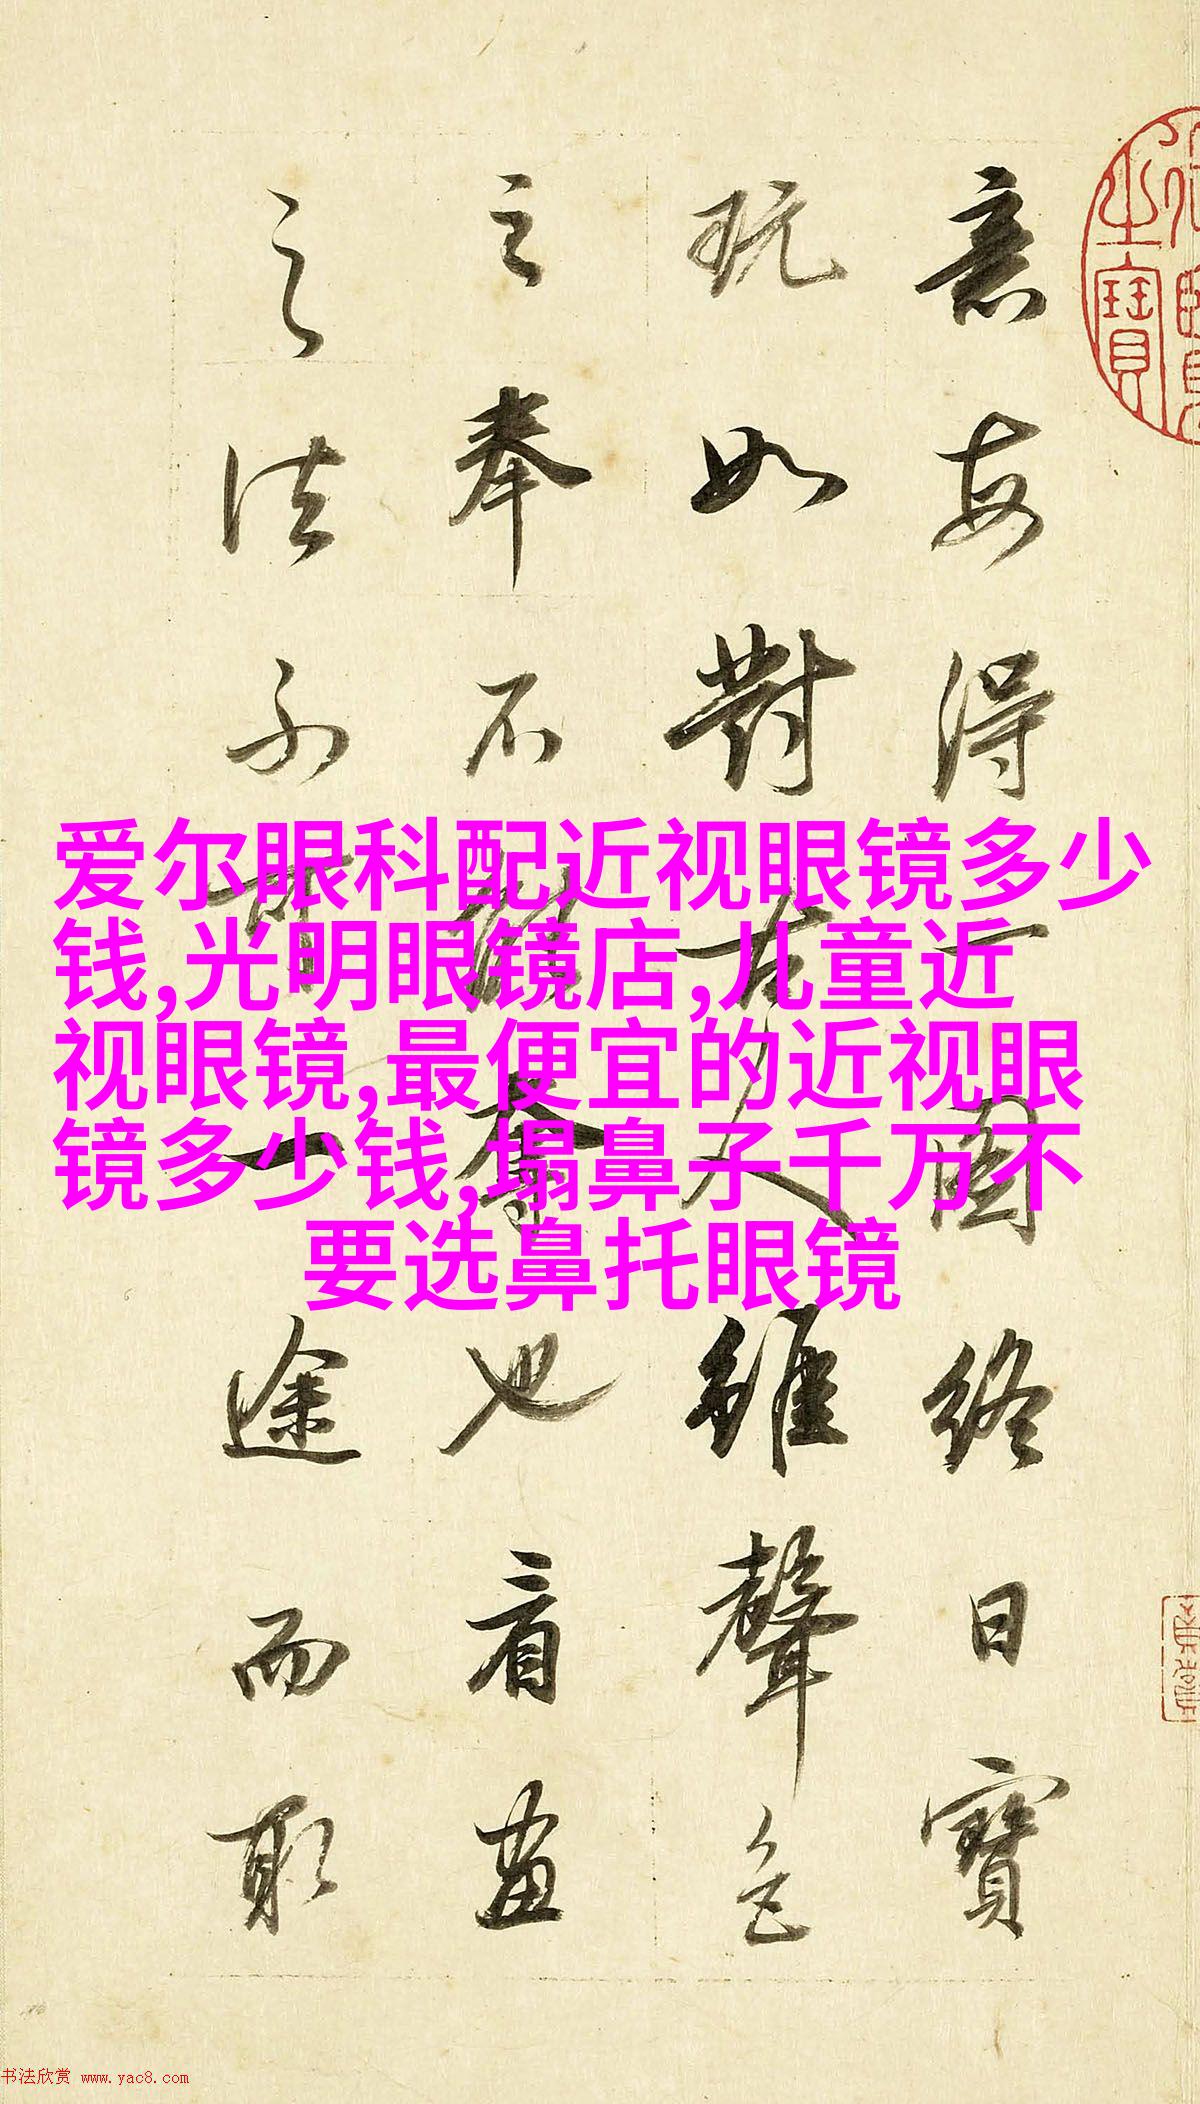 意每得一圖終日寶
玩如對古人雖聲色
之奉不能奪也看畫
之法不可一途而取
爱尔眼科配近视眼镜多少
钱,光明眼镜店,儿童近
视眼镜,最便宜的近视眼
镜多少钱,塌鼻子千万不
要选鼻托眼镜
之寶
书法欣赏 www.yac8.com